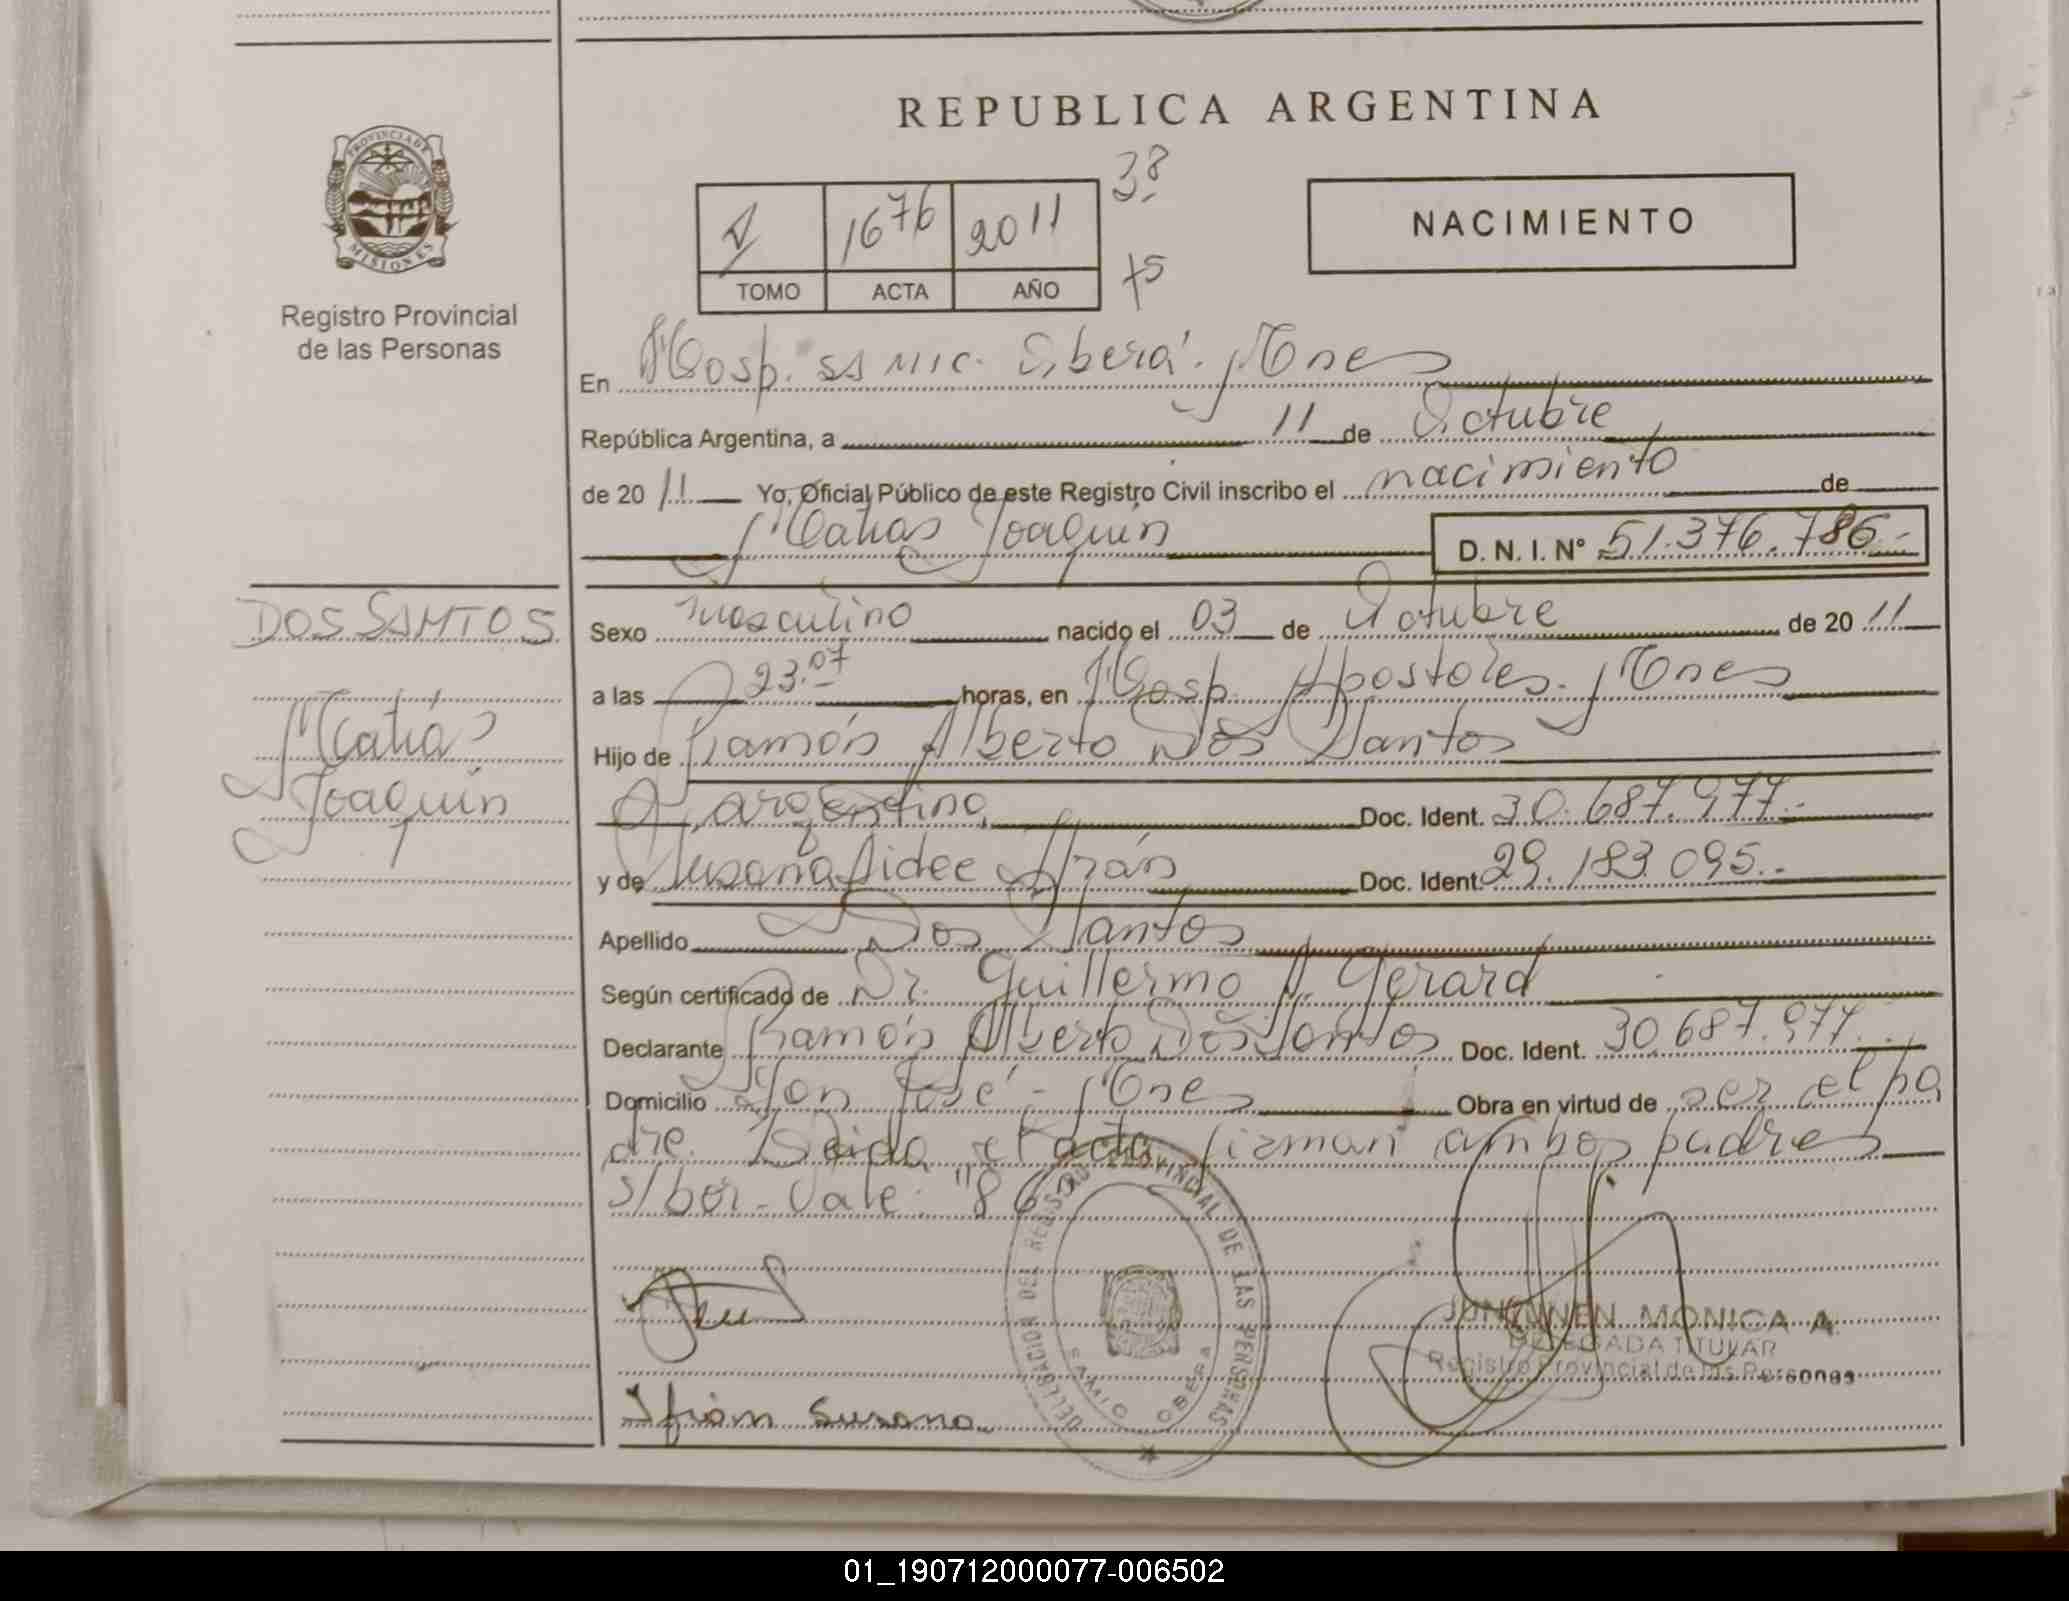 REPUBLICA ARGENTINA
PROVINCIA DE
MISIONES
Registro Provincial
de las Personas
1676 2011
38
TOMO ACTA AÑO
75
NACIMIENTO
En Hosp. SAMIC. Oberá. Mnes
República Argentina, a 11 de Octubre
de 2011 Yo, Oficial Público de este Registro Civil inscribo el nacimiento de
Matias Joaquin D. N. I. N° 51.376.786.-
DOS SANTOS
Matias
Joaquin
Sexo masculino nacido el 03 de Octubre de 2011
a las 23.07 horas, en Hosp. Apostoles. Mnes
Hijo de Ramón Alberto Dos Santos
argentino Doc. Ident. 30.687.977.-
y de Susana Aidee Doc. Ident. 29.183.095.-
Apellido Dos Santos
Según certificado de Dr. Guillermo A. Gerard
Declarante Ramón Alberto Dos Santos Doc. Ident. 30.687.977.
Domicilio San José - Mnes Obra en virtud de ser el pa
dre. Leida el acta firman ambos padres
s/ber - Vale: "86"
DELEGACION DEL REGISTRO PROVINCIAL DE LAS PERSONAS
SAMIC OBERA
MONICA A.
DELEGADA TITULAR
Registro Provincial de las Personas
Susana
01_190712000077-006502